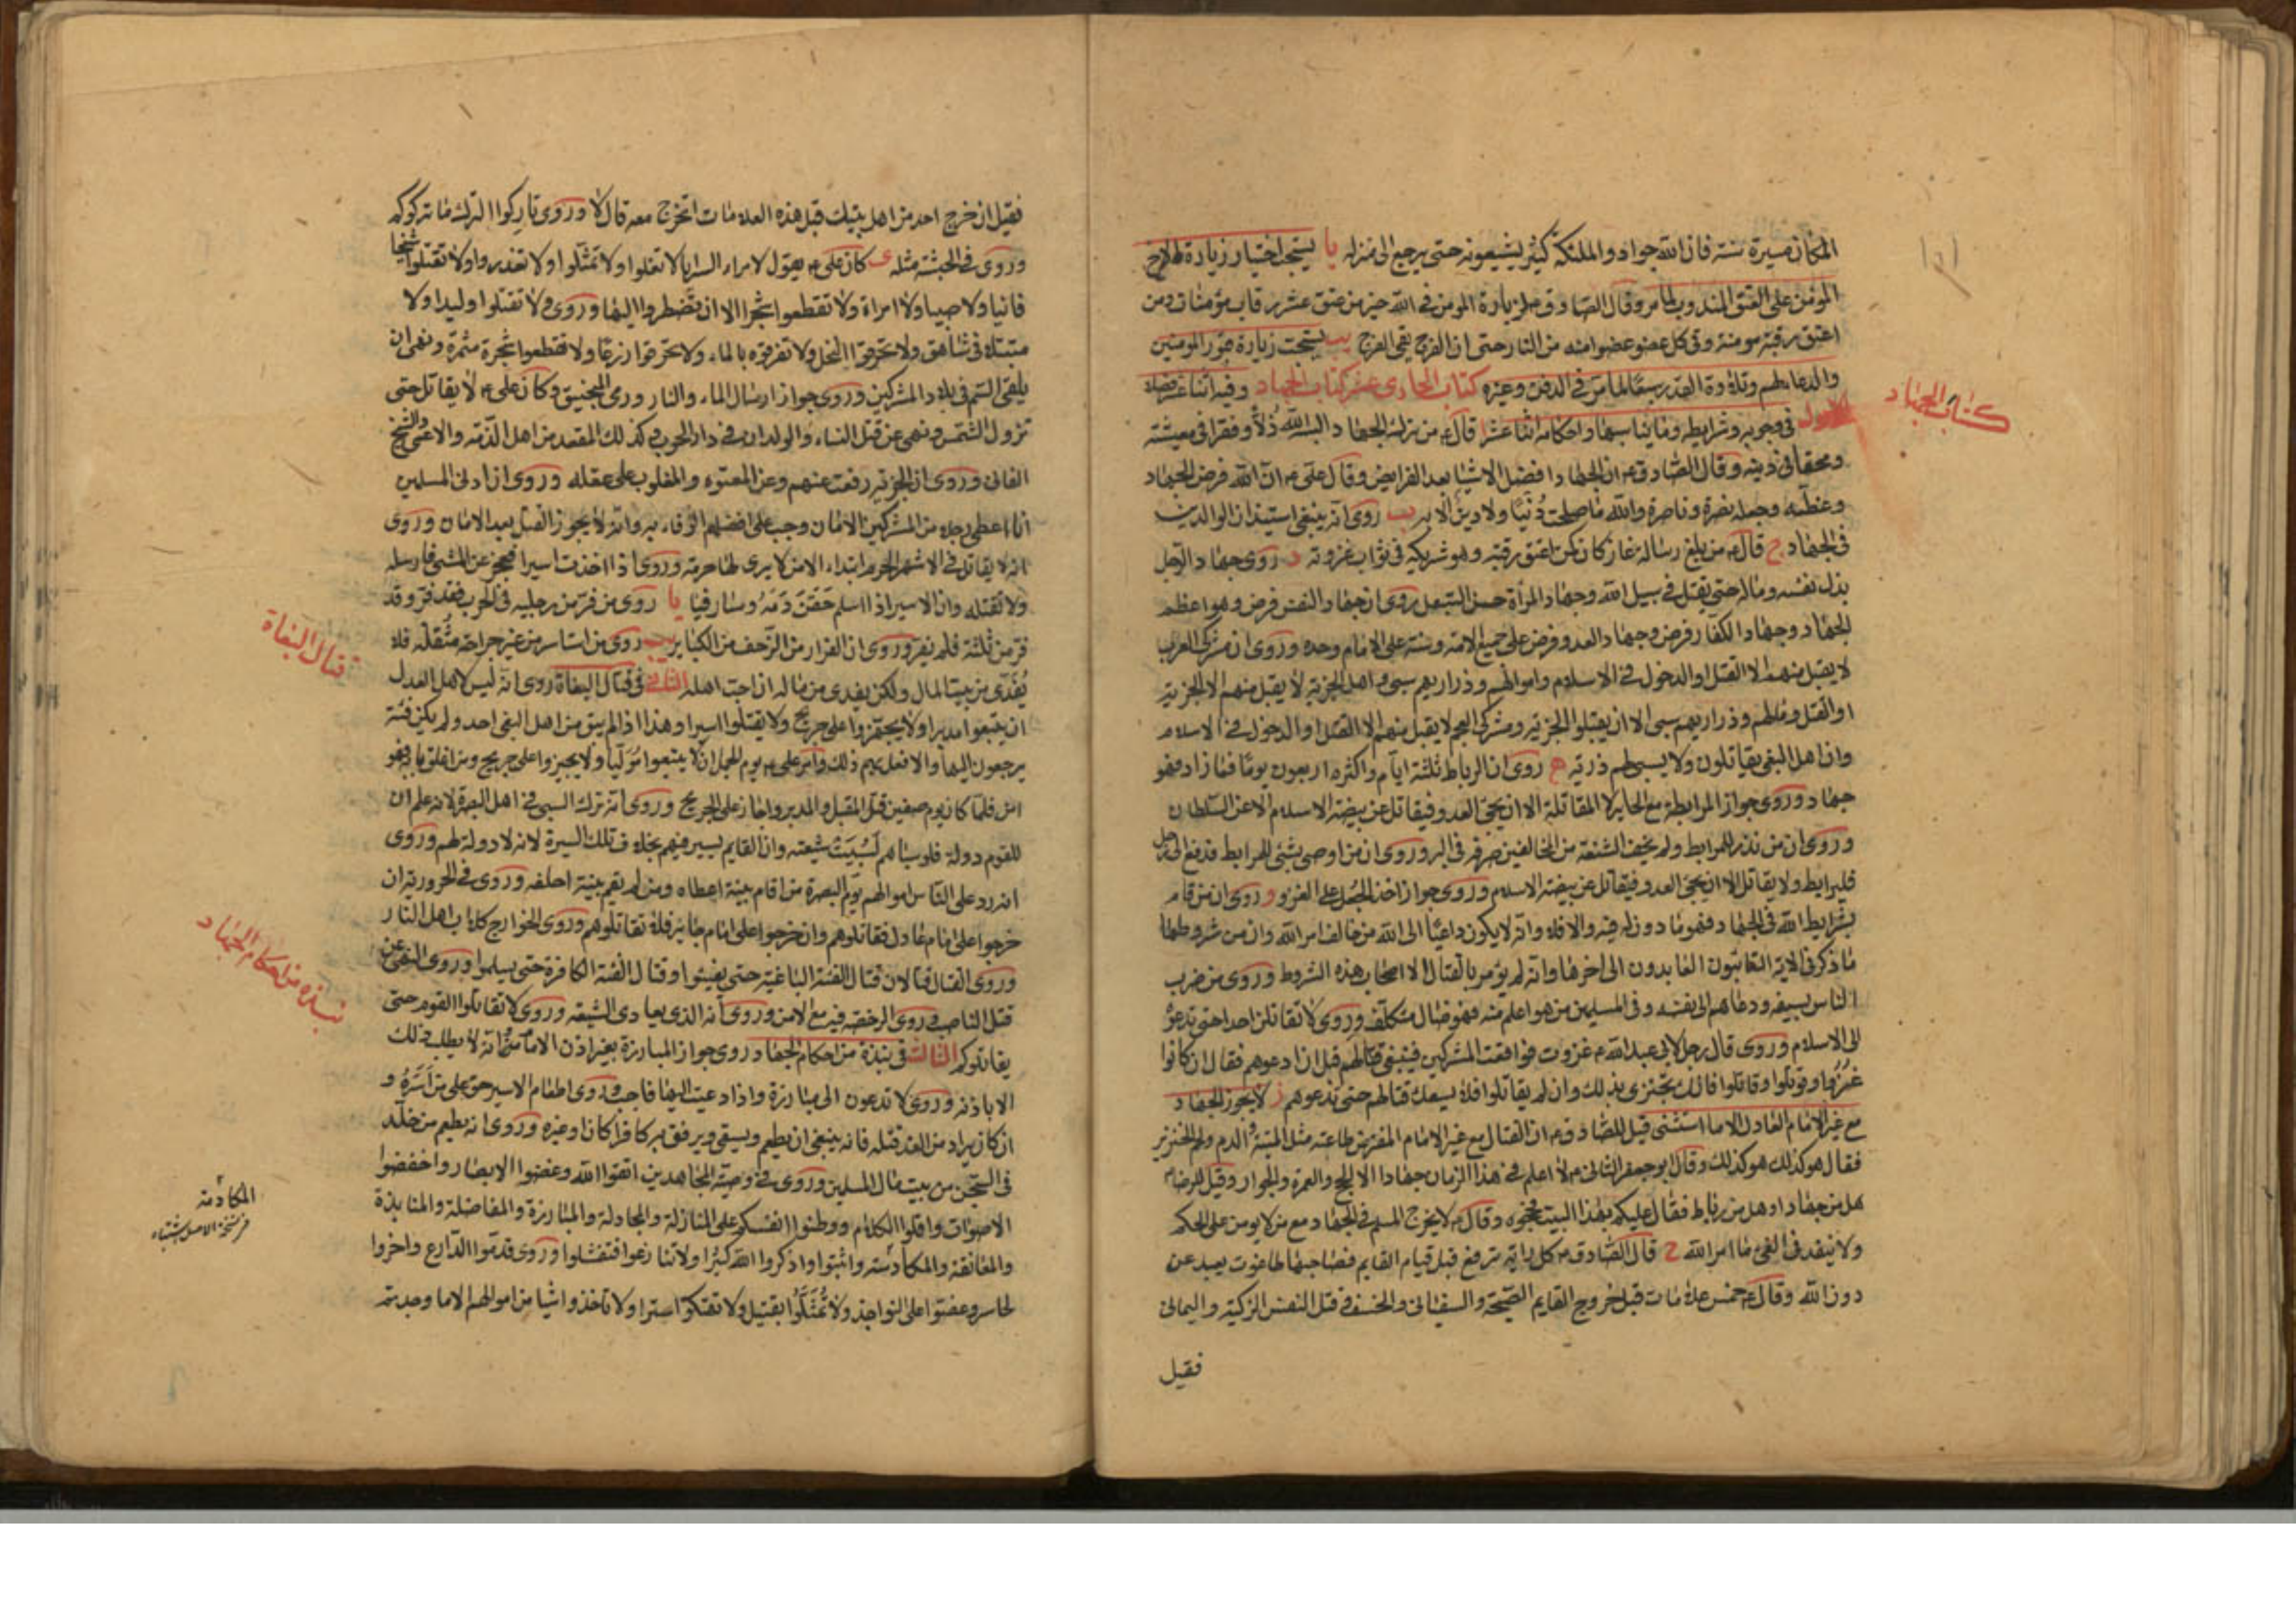 المكان مسيرة سنة فان الله جواد والملئكة كثير يشيعونه حتى يرجع الى منزله يا يستحب اختيار زيارة الاخ
المؤمن على العتق المندوب لما مر وقال الصادق م لزيارة المومن في الله خير من عتق عشر رقاب مؤمنات ومن
اعتق رقبة مومنة وقى كل عضو عضوا منه من النار حتى ان الفرج يقى الفرج يب يستحب زيارة قبور المومنين
والدعا لهم وتلاوة القدر سبعا لما مر في الدفن وغيره كتاب الحادى عشر كتاب الجهاد وفيه اثنا عشر فصلا
كتاب الجهاد
الاول في وجوبه وشرايطه وما يناسبها واحكامه اثنا عشر ا قال ع من ترك الجهاد البسه الله ذلا وفقرا في معيشته
ومحقا في دينه وقال الصادق م ان الجهاد افضل الاشيا بعد الفرايض وقال على م ان الله فرض الجهاد
وعظمه وجعله نصرة وناصره والله ما صلحت دنيا ولا دين الا به ب روى انه ينبغى استيذان الوالدين
في الجهاد ج قال ع من بلغ رسالة غاز كان كمن اعتق رقبة وهو شريكه في ثواب غزوته د روى جهاد الرجل
بذل نفسه وماله حتى يقتل في سبيل الله وجهاد المرأة حسن التبعل روى ان جهاد النفس فرض وهو اعظم
الجهاد وجهاد الكفار فرض وجهاد العدو فرض على جميع الامة وسنة على الامام وحده وروى ان مشركى العرب
لا يقبل منهم الا القتل او الدخول في الاسلام واموالهم وذراريهم سبى واهل الجزية لا يقبل منهم الا الجزية
او القتل ومالهم وذراريهم سبى الا ان يقبلوا الجزية ومشركى العجم لا يقبل منهم الا القتل او الدخول في الاسلام
وان اهل البغى يقاتلون ولا يسبى لهم ذرية ه روى ان الرباط ثلثة ايام واكثره اربعون يوما فما زاد فهو
جهاد وروى جواز المرابطة مع الجاير لا المقاتلة الا ان يجئ العدو فيقاتل عن بيضة الاسلام لا عن السلطان
وروى ان من نذر للمرابط ولم يخف الشنعة من المخالفين صرفه في البر وروى ان من اوصى بشئ للمرابط فدفع الى رجل
فليرابط ولا يقاتل الا ان يجئ العدو فيقاتل عن بيضة الاسلام وروى جواز اخذ الجعل على الغزو و روى ان من قام
بشرايط الله في الجهاد فهو ماذون له فيه والا فلا وانه لا يكون داعيا الى الله من خالف امر الله وان من شروطها
ما ذكر في الاية التائبون العابدون الى اخرها وانه لم يؤمر بالقتال الا اصحاب هذه الشروط وروى من ضرب
الناس بسيفه ودعاهم الى نفسه وفي المسلمين من هو اعلم منه فهو ضال متكلف وروى لا تقاتلن احدا حتى تدعو
الى الاسلام وروى قال رجل لابى عبد الله م غزوت فواقعت المشركين فينبغى قتالهم قبل ان ادعوهم فقال ان كانوا
غزوا وقوتلوا وقاتلوا فانك تجتزى بذلك وان لم يقاتلوا فلا يسعك قتالهم حتى تدعوهم ز لا يجوز الجهاد
مع غير الامام العادل الا ما استثنى قيل للصادق م ان القتال مع غير الامام المفترض طاعته مثل الميتة والدم ولحم الخنزير
فقال هو كذلك هو كذلك وقال ابو جعفر الثانى م لا اعلم في هذا الزمان جهادا الا الحج والعمرة والجوار وقيل للرضا م
هل من جهاد او هل من رباط فقال عليكم بهذا البيت فحجوه وقال م لا يخرج المسلم في الجهاد مع من لا يومن على الحكم
ولا ينفذ في الفئ ما امر الله ح قال الصادق م كل راية ترفع قبل قيام القايم فصاحبها طاغوت يعبد من
دون الله وقال ع خمس علامات قبل خروج القايم الصيحة والسفيانى والخسف وقتل النفس الزكية واليمانى
فقيل
فقيل ان خرج احد من اهل بيتك قبل هذه العلامات اتخرج معه قال لا وروى تاركوا الترك ما تركوكم
وروى في الحبشة مثله ى كان على م يقول لامراء السرايا لا تغلوا ولا تمثلوا ولا تغدروا ولا تقتلوا شيخا
فانيا ولا صبيا ولا امراة ولا تقطعوا شجرا الا ان تضطروا اليها وروى ولا تقتلوا وليدا ولا
متبتلا في شاهق ولا تحرقوا النخل ولا تغرقوه بالماء ولا تحرقوا زرعا ولا تقطعوا شجرة مثمرة ونهى ان
يلقى السم في بلاد المشركين وروى جواز ارسال الماء والنار ورمى المجنيق وكان على م لا يقاتل حتى
تزول الشمس ونهى عن قتل النساء والولدان في دار الحرب وكذلك المقعد من اهل الذمة والاعمى والشيخ
الفانى وروى ان الجزية رفعت عنهم وعن المعتوه والمغلوب على عقله وروى ان ادنى المسلمين
اذا اعطى رجلا من المشركين الامان وجب على افضلهم الوفاء به وانه لا يجوز القتل بعد الامان وروى
انه لا يقاتل في الاشهر الحرم ابتداء الا من لا يرى لها حرمة وروى اذا اخذت اسيرا فعجز عن المشى فارسله
ولا تقتله وان الاسير اذا اسلم حقن دمه وصار فيئا يا روى من فر من رجلين في الحرب فقد فر وقد
فر من ثلثة فلم يفر وروى ان الفرار من الزحف من الكباير يب روى من استاسر من غير جراحة مثقلة فلا
قتال البغاة
يفدى من بيت المال ولكن يفدى من ماله ان احب اهله الثانى في قتال البغاة روى انه ليس لاهل العدل
ان يتبعوا مدبرا ولا يجهزوا على جريح ولا يقتلوا اسيرا وهذا اذا لم يبق من اهل البغى احد ولم يكن فئة
يرجعون اليها والا فعل بهم ذلك وامر على م يوم الجمل ان لا يتبعوا موليا ولا يجيزوا على جريح ومن اغلق بابه فهو
امن فلما كان يوم صفين قتل المقبل والمدبر واجاز على الجريح وروى انه ترك السبى في اهل البصرة لانه علم ان
للقوم دولة فلو سباهم لسبيت شيعته وان القايم يسير فيهم بخلاف تلك السيرة لانه لا دولة لهم وروى
انه رد على الناس اموالهم يوم البصرة من اقام بينة اعطاه ومن لم يقم بينة احلفه وروى في الحرورية ان
نبذه من احكام الجهاد
خرجوا على امام عادل فقاتلوهم وان خرجوا على امام جاير فلا تقاتلوهم وروى الخوارج كلاب اهل النار
وروى القتال قتالان قتال الفئة الباغية حتى يفيئوا وقتال الفئة الكافرة حتى يسلموا وروى النهى عن
قتل الناصب وروى الرخصة فيه مع الامن وروى انه الذى يعادى الشيعة وروى لا تقاتلوا القوم حتى
يقاتلوكم الثالث في نبذة من احكام الجهاد روى جواز المبارزة بغير اذن الامام وانه لا يطلب ذلك
الا باذنه وروى لا تدعون الى مبارزة واذا دعيت اليها فاجب وروى اطعام الاسير حق على من اسره و
ان كان يراد من الغد قتله فانه ينبغى ان يطعم ويسقى ويرفق به كافرا كان او غيره وروى انه يطعم من خلد
في السجن من بيت مال المسلمين وروى في وصية المجاهدين اتقوا الله وغضوا الابصار واخفضوا
الاصوات واقلوا الكلام ووطنوا انفسكم على المنازلة والمجادلة والمبارزة والمفاضلة والمنابذة
المكادمة
والمعانقة والمكادسته واثبتوا واذكروا الله كثيرا ولا تنازعوا فتفشلوا وروى قدموا الدارع واخروا
الحاسر وعضوا على النواجذ ولا تمثلوا بقتيل ولا تهتكوا سترا ولا تاخذوا شيا من اموالهم الا ما وجدتم